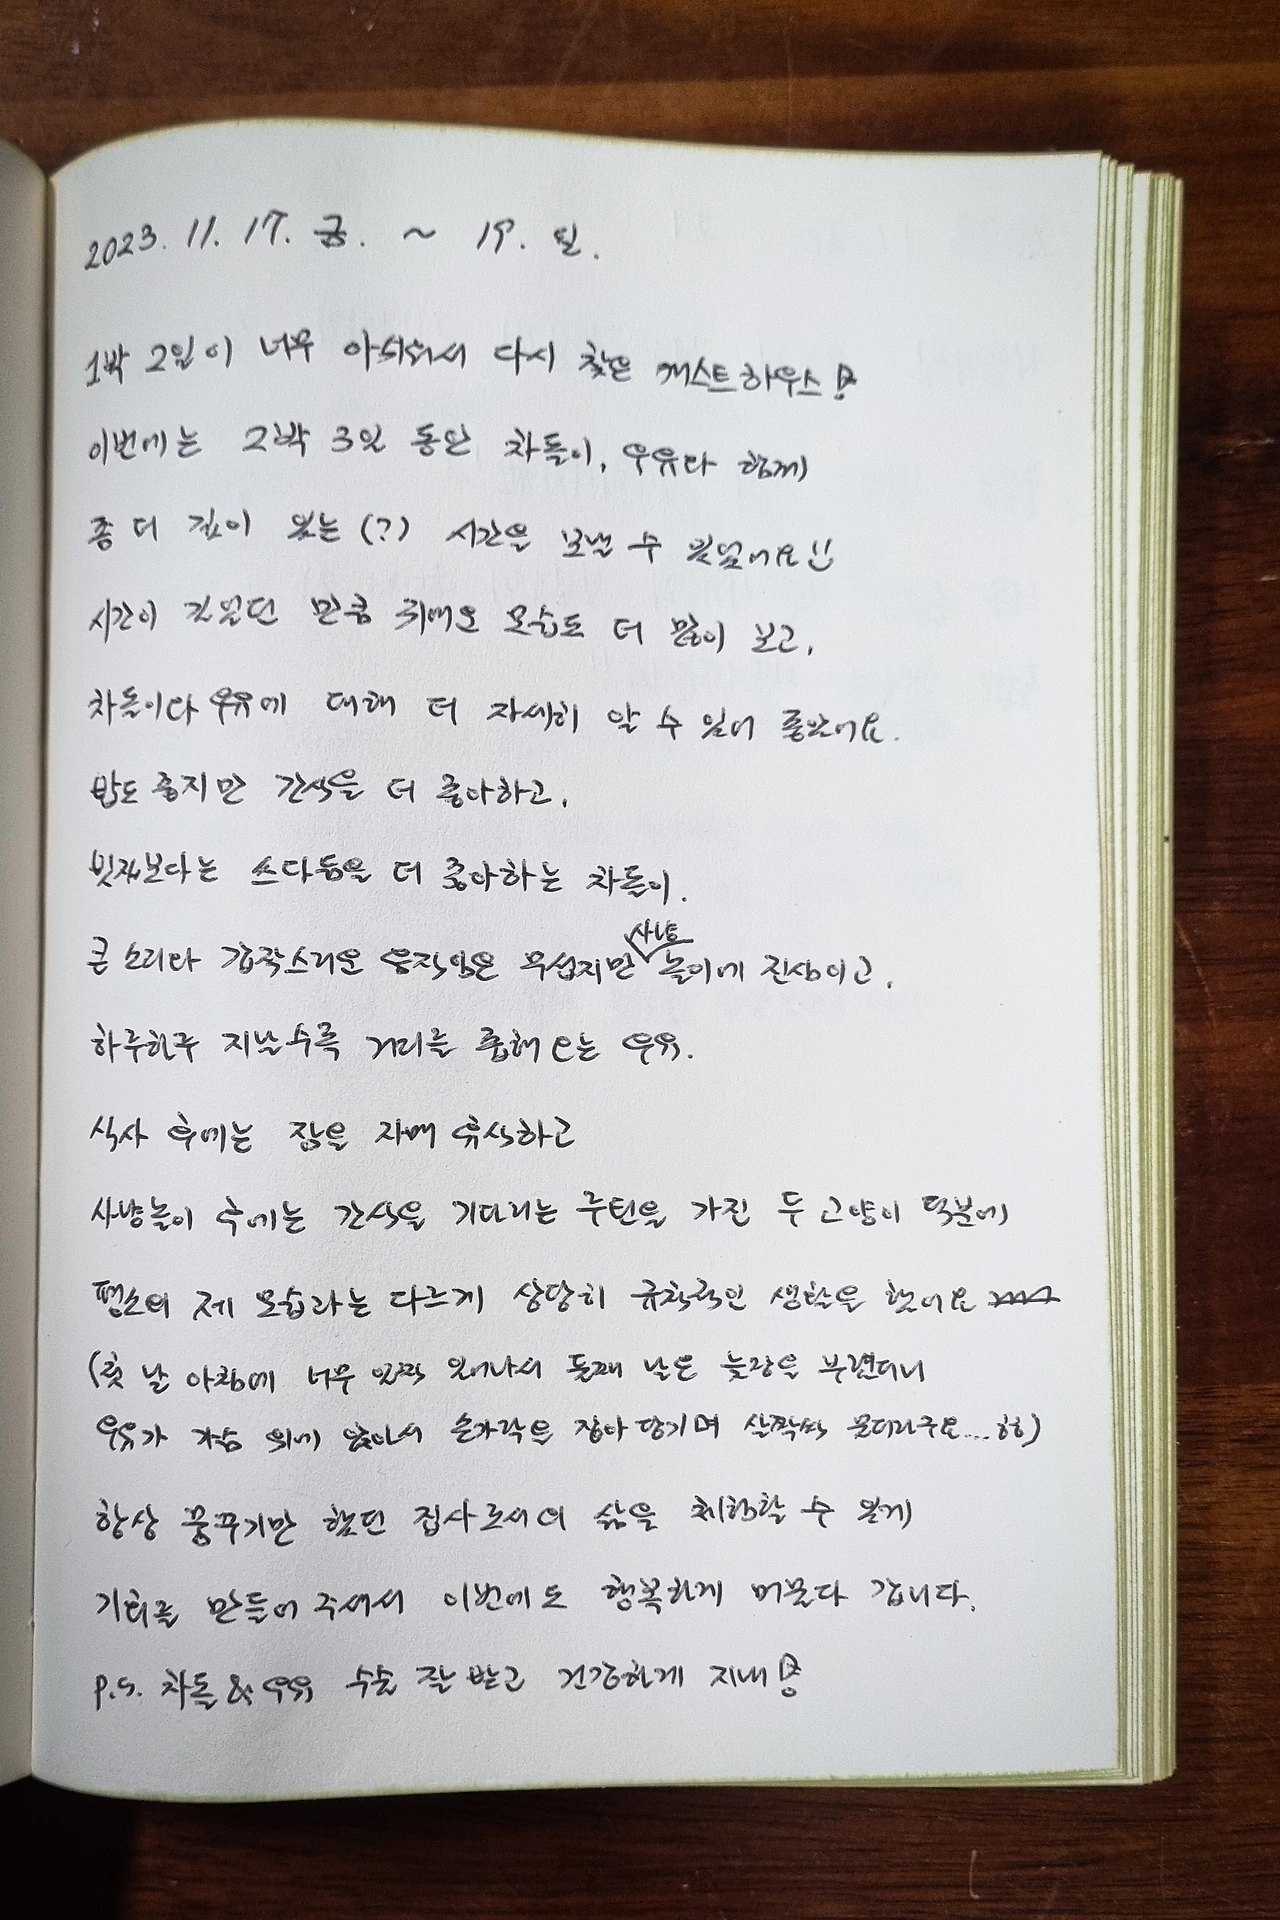 2023. 11. 17. 금. ~ 19. 일.
1박 2일이 너무 아쉬워서 다시 찾은 게스트하우스!
이번에는 2박 3일 동안 차돌이, 우유와 함께
좀 더 깊이 있는(?) 시간을 보낼 수 있었어요!!
시간이 길었던 만큼 귀여운 모습도 더 많이 보고,
차돌이와 우유에 대해 더 자세히 알 수 있어 좋았어요.
밥도 좋지만 간식을 더 좋아하고,
빗질보다는 쓰다듬을 더 좋아하는 차돌이.
큰 소리와 갑작스러운 움직임은 무섭지만 사냥놀이에 진심이고,
하루하루 지날수록 거리를 좁혀 오는 우유.
식사 후에는 잠을 자며 휴식하고
사냥놀이 후에는 간식을 기다리는 루틴을 가진 두 고양이 덕분에
평소의 제 모습과는 다르게 상당히 규칙적인 생활을 했어요
(첫 날 아침에 너무 일찍 일어나서 둘째 날은 늦장을 부렸더니
우유가 가슴 위에 앉아서 손가락을 잡아 당기며 살짝씩 물더라구요...ㅎㅎ)
항상 꿈꾸기만 했던 집사로서의 삶을 체험할 수 있게
기회를 만들어 주셔서 이번에도 행복하게 머물다 갑니다.
P.S. 차돌 & 우유 수술 잘 받고 건강하게 지내!